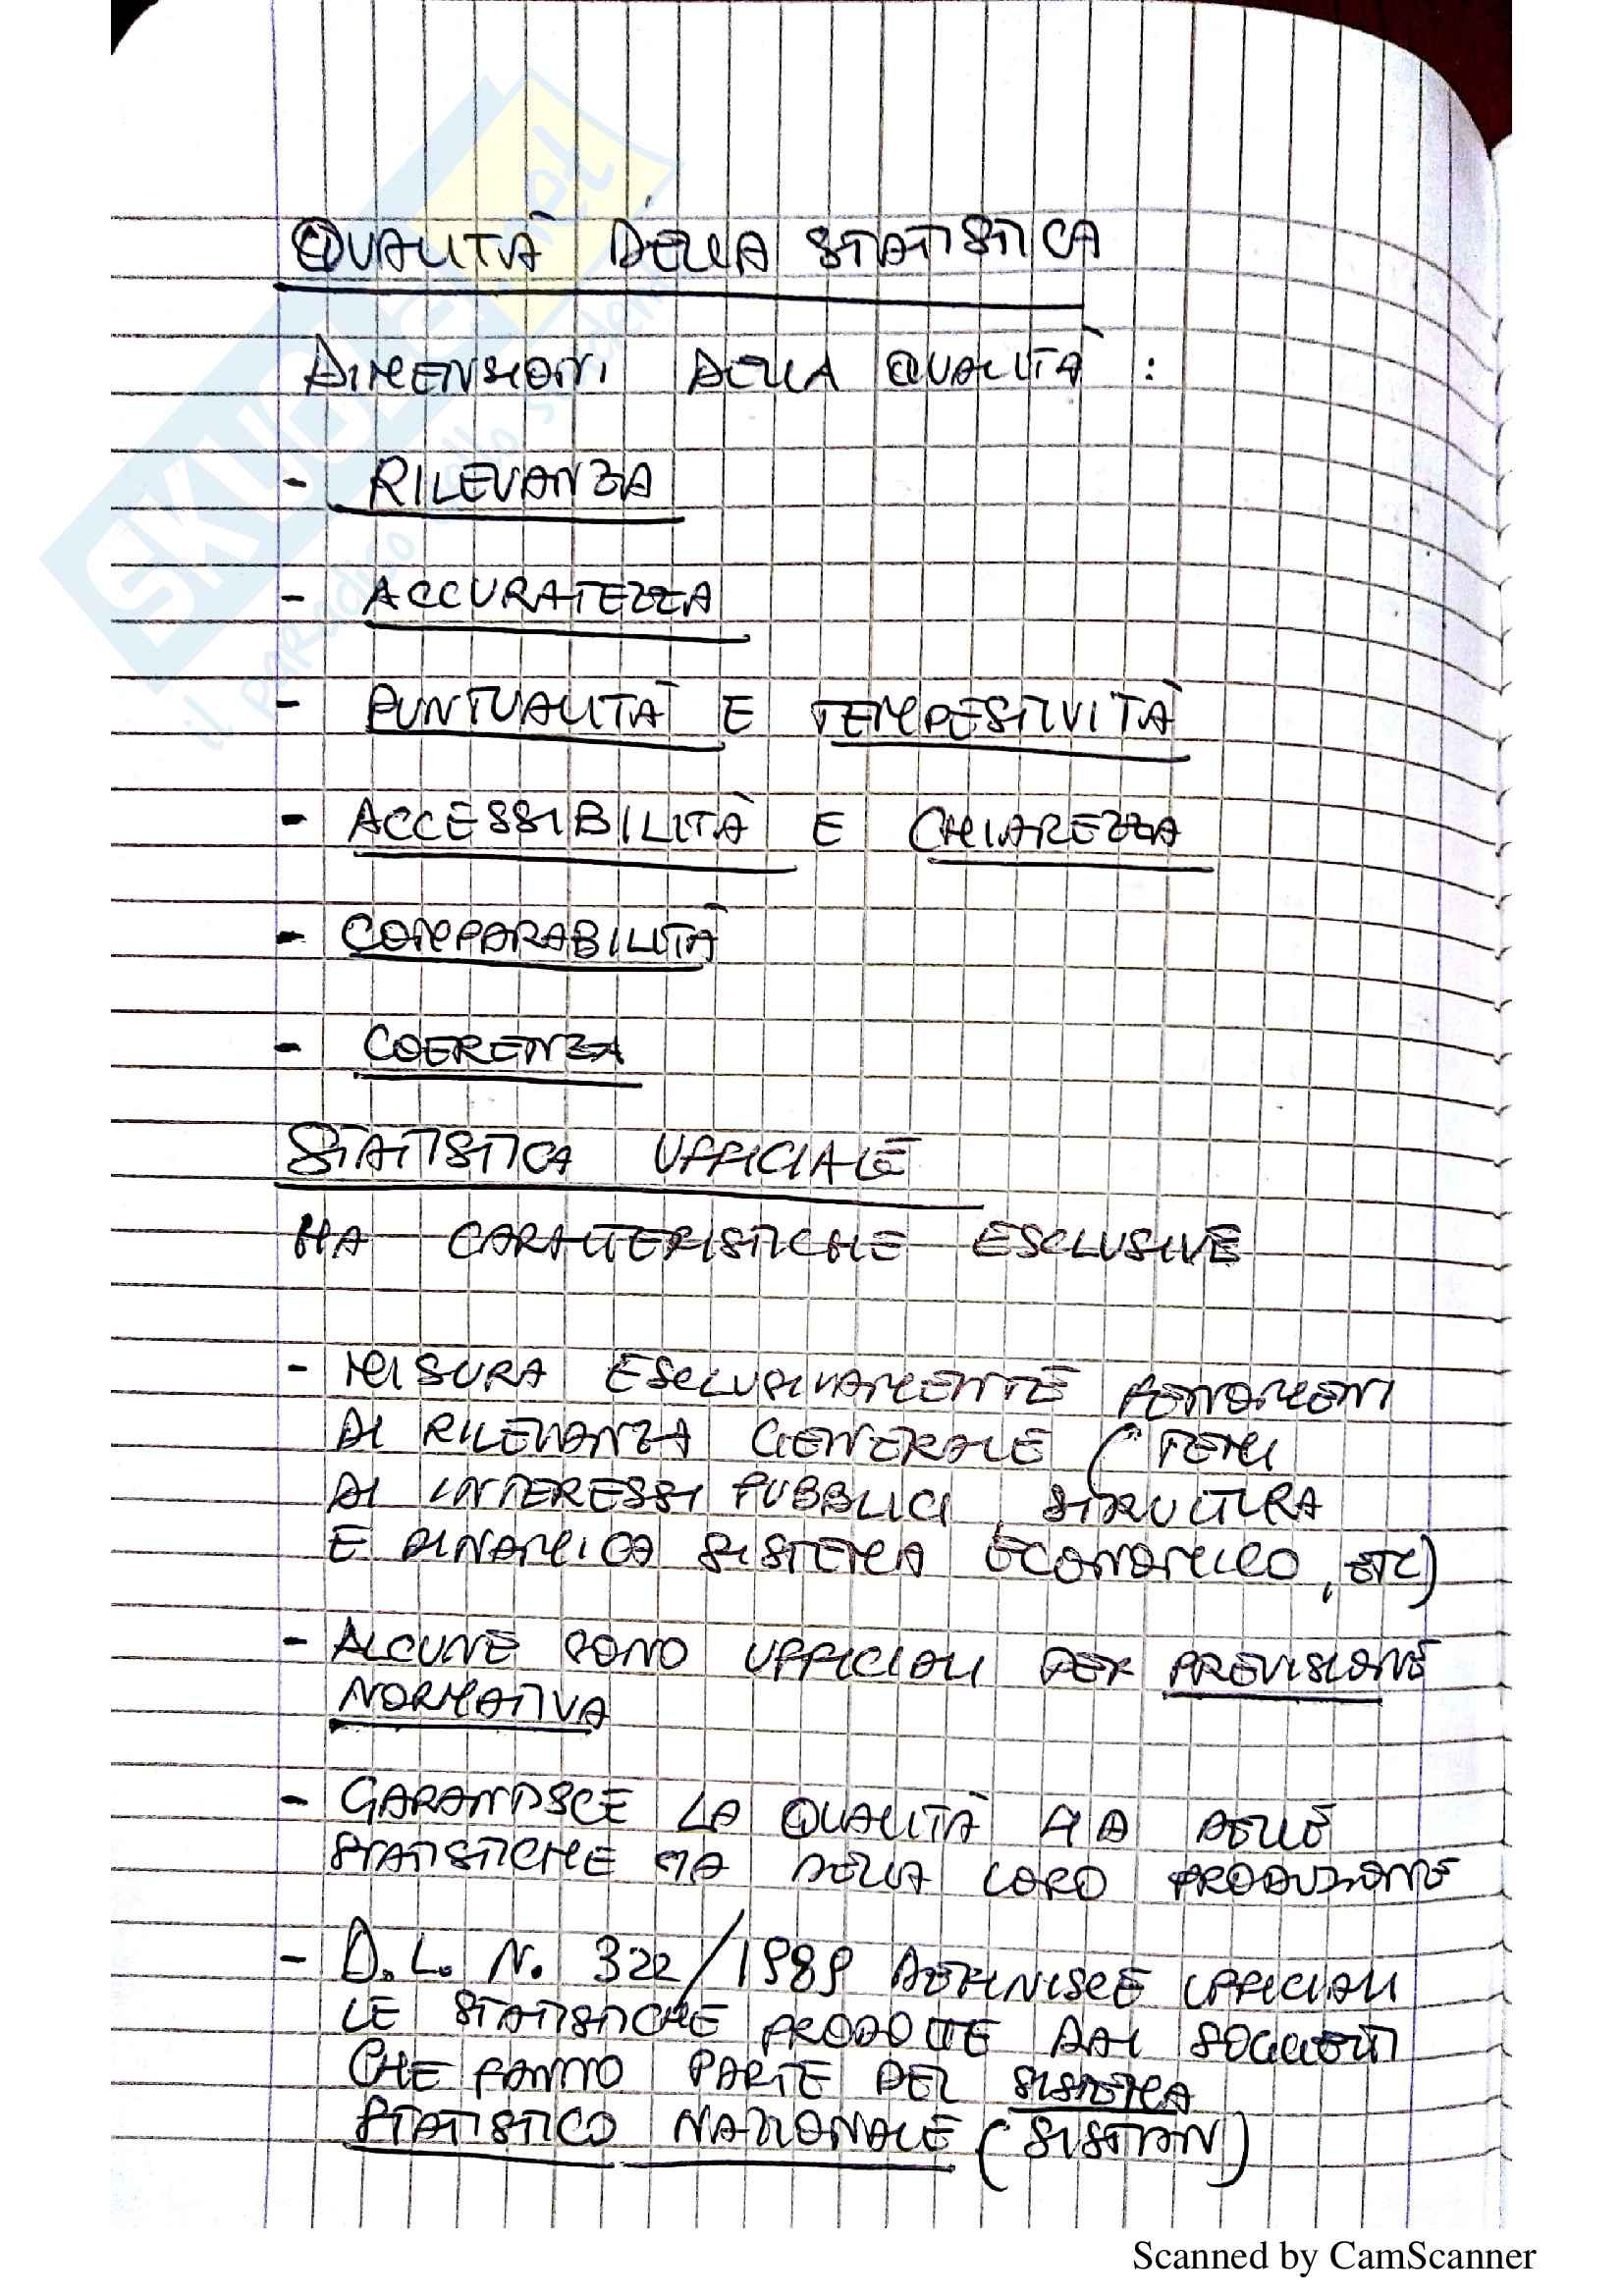 QUALITÀ DELLA STATISTICA
DIMENSIONI DELLA QUALITÀ :
- RILEVANZA
- ACCURATEZZA
- PUNTUALITÀ E TEMPESTIVITÀ
- ACCESSIBILITÀ E CHIAREZZA
- COMPARABILITÀ
- COERENZA
STATISTICA UFFICIALE
HA CARATTERISTICHE ESCLUSIVE
- MISURA ESCLUSIVAMENTE FENOMENI
DI RILEVANZA GENERALE (TEMI
DI INTERESSI PUBBLICI, STRUTTURA
E DINAMICA SISTEMA ECONOMICO, ETC)
- ALCUNE SONO UFFICIALI PER PREVISIONE
NORMATIVA
- GARANTISCE LA QUALITÀ SIA DELLE
STATISTICHE SIA DELLA LORO PRODUZIONE
- D.L. N. 322/1989 DEFINISCE UFFICIALI
LE STATISTICHE PRODOTTE DAI SOGGETTI
CHE FANNO PARTE DEL SISTEMA
STATISTICO NAZIONALE (SISTAN)
SKUOLA.net
il paradiso dello studente
Scanned by CamScanner